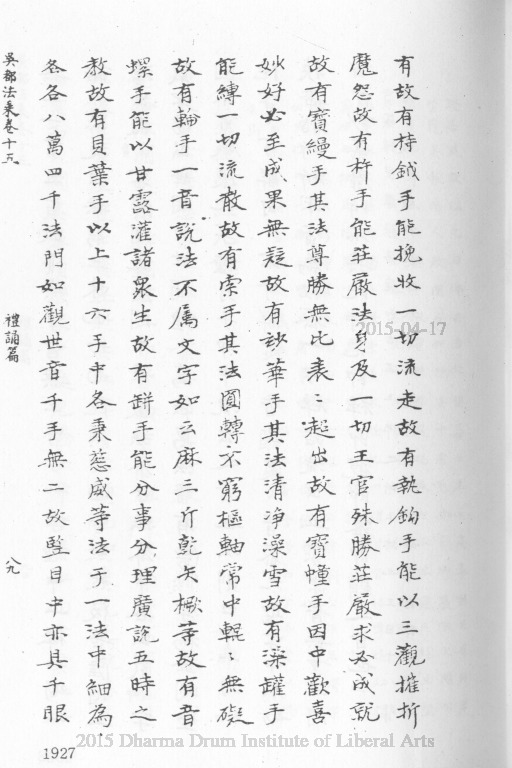 有故有持鉞手能挽收一切流走故有執鉤手能以三觀摧折
魔怨故有杵手能莊嚴法身及一切王官殊勝莊嚴求必成就
故有寶縵手其法尊勝無比表〻超出故有寶幢手因中歡喜
妙好必至成果無疑故有妙華手其法清净澡雪故有澡罐手
能縛一切流散故有索手其法圓轉不窮樞軸常中輥〻無礙
故有輪手一音說法不属文字如云麻三斤乾矢橛等故有音
螺手能以甘露灌諸衆生故有缾手能分事分理廣說五時之
教故有貝葉手以上十六手中各秉慈威等法于一法中細為
各各八萬四千法門如觀世音千手無二故豎目中亦具千眼
吳都法乘卷十五
禮誦篇
八九
1927
2015-04-17
2015 Dharma Drum Institute of Liberal Arts